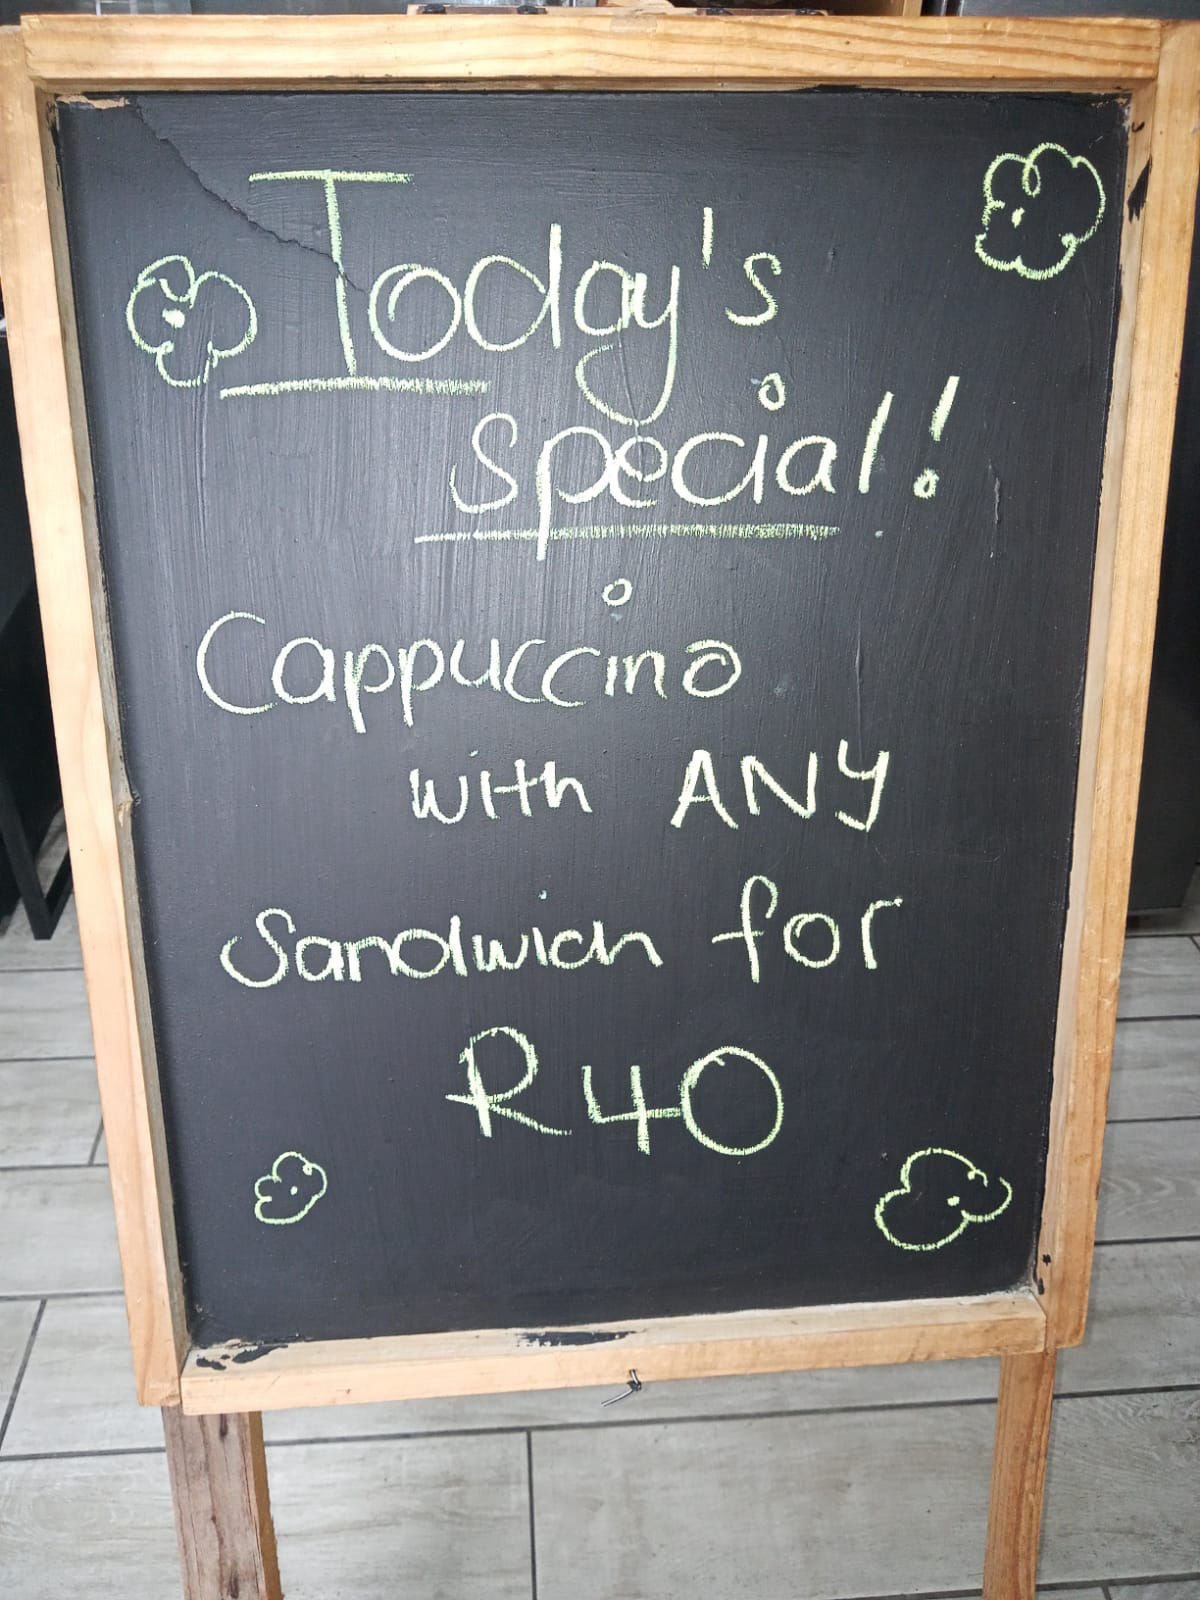 Today's
special!
Cappuccino
with ANY
Sandwich for
R40